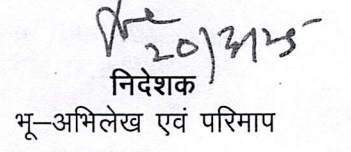 20/3/25
निदेशक
भू–अभिलेख एवं परिमाप